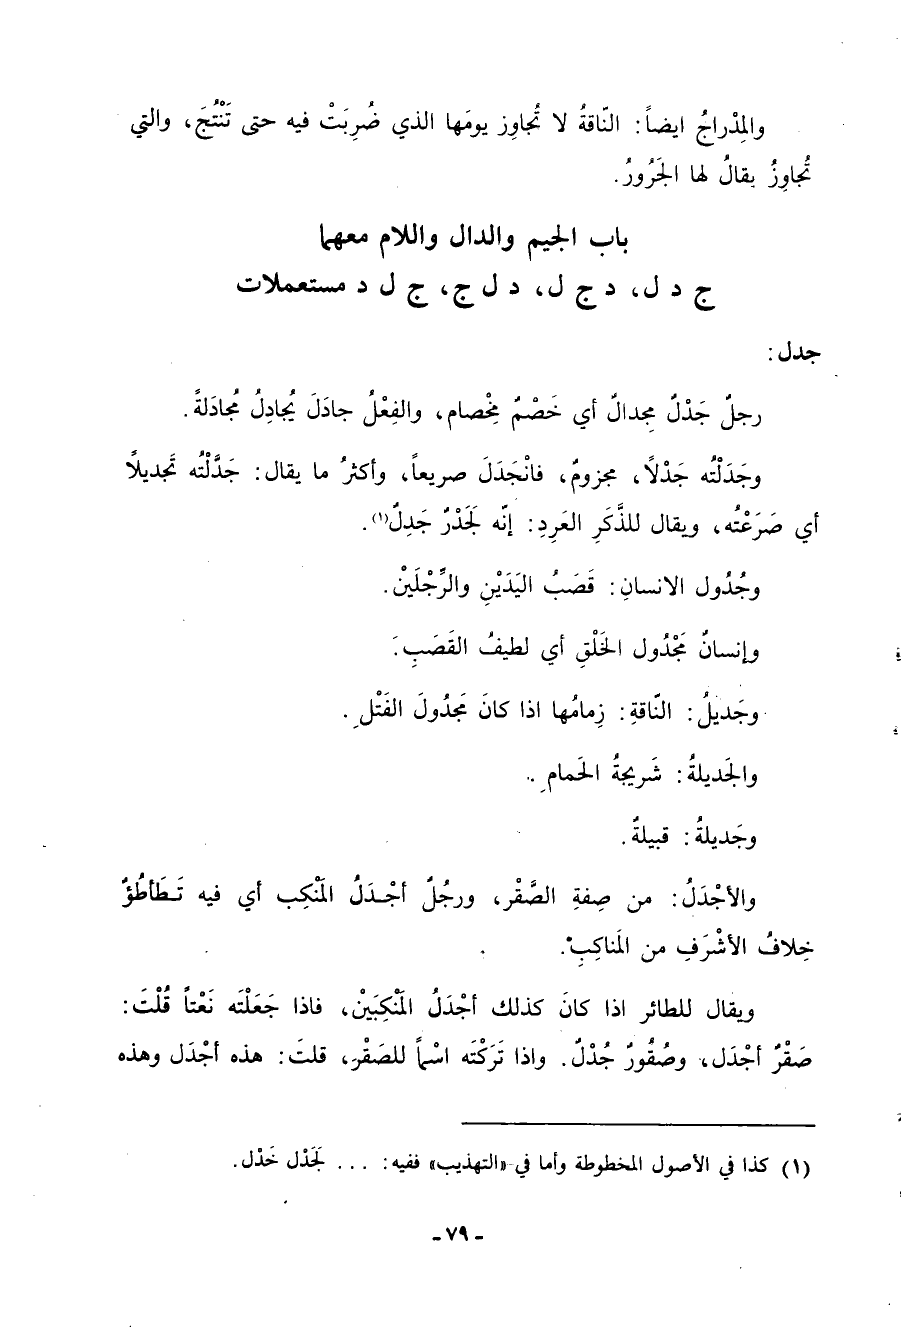 والمِدْراجُ ايضاً: النّاقةُ لا تُجاوِز يومَها الذي ضُرِبَتْ فيه حتى تَنْتُجَ، والتي
تُجاوِزُ يقالُ لها الجَرُورُ.
باب الجيم والدال واللام معهما
ج د ل، د ج ل، د ل ج، ج ل د مستعملات
جدل:
رجلٌ جَدْلٌ مجدالٌ أي خَصْمٌ مِخْصام، والفِعْلُ جادَلَ يُجادِلُ مُجادَلةً.
وجَدَلْتُه جَدْلاً، مجزومٌ، فانْجَدَلَ صريعاً، وأكثرُ ما يقال: جَدَّلْتُه تَجديلاً
أي صَرَعْتُه، ويقال للذَّكَرِ العَرِدِ: إنّه لَجَذْرٌ جَدِلٌ(١).
وجُدُول الانسانِ: قَصَبُ اليَدَيْنِ والرِّجْلَيْنْ.
وإنسانٌ مَجْدُول الخَلْقِ أي لطيفُ القَصَبِ.
وجَديلُ: النّاقةِ: زِمامُها اذا كانَ مَجدُولَ الفَتْلِ.
والجَديلةُ: شَريجةُ الحَمامِ.
وجَديلةُ: قبيلةٌ.
والأجْدَلُ: من صِفةِ الصَّقْر، ورجُلٌ أجْدَلُ المَنْكِب أي فيه تَطَأطُؤٌ
خِلافُ الأشْرَفِ من المَناكِبْ.
ويقال للطائر اذا كانَ كذلك أجْدَلُ المَنْكِبَيْنْ، فاذا جَعَلْتَه نَعْتاً قُلْتَ:
صَقْرٌ أجْدَل، وصُقُورٌ جُدْلٌ. واذا تَرَكْتَه اسْماً للصَقْرَ، قلتَ: هذه أجْدَل وهذه
(١) كذا في الأصول المخطوطة وأما في «التهذيب» ففيه: ... لَجَدْل خَدْل.
- ٧٩ -